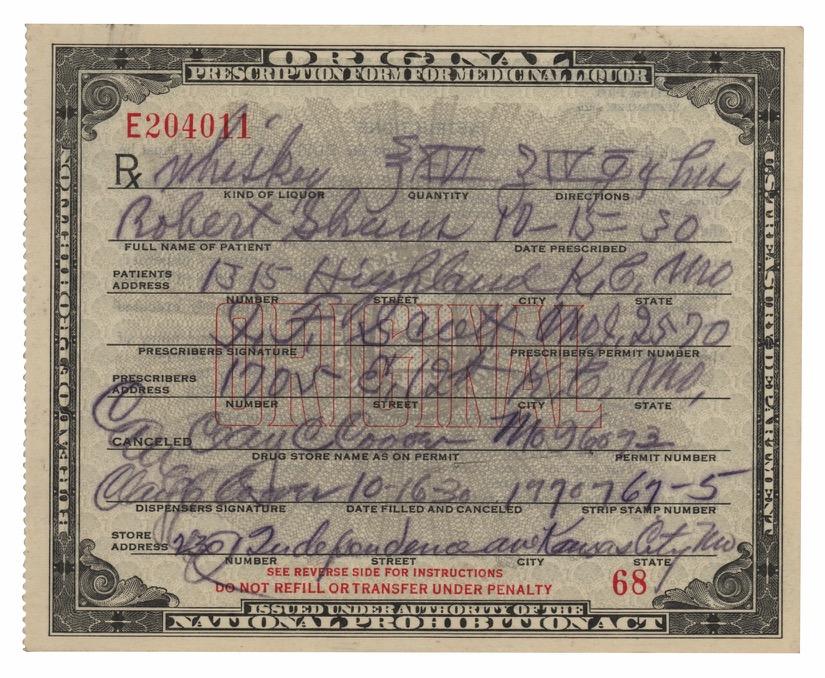 ORIGINAL
PRESCRIPTION FORM FOR MEDICINAL LIQUOR
E204011
Rx Whiskey ℥XVI ℥IV q 4 hrs,
KIND OF LIQUOR QUANTITY DIRECTIONS
Robert 10-15-30
FULL NAME OF PATIENT DATE PRESCRIBED
PATIENTS ADDRESS 1315 Highland K.C. Mo
NUMBER STREET CITY STATE
ORIGINAL
Mo. 2570
PRESCRIBERS SIGNATURE PRESCRIBERS PERMIT NUMBER
PRESCRIBERS ADDRESS 1705 E. 12 K.C. Mo.
NUMBER STREET CITY STATE
CANCELED Clay C Coover Mo
DRUG STORE NAME AS ON PERMIT PERMIT NUMBER
Clay C Coover 10-16-30 1770767-5
DISPENSERS SIGNATURE DATE FILLED AND CANCELED STRIP STAMP NUMBER
STORE ADDRESS 2307 Independence ave Kansas City Mo
NUMBER STREET CITY STATE
SEE REVERSE SIDE FOR INSTRUCTIONS
DO NOT REFILL OR TRANSFER UNDER PENALTY
68
ISSUED UNDER AUTHORITY OF THE
NATIONAL PROHIBITION ACT
BUREAU OF PROHIBITION
U.S. TREASURY DEPARTMENT